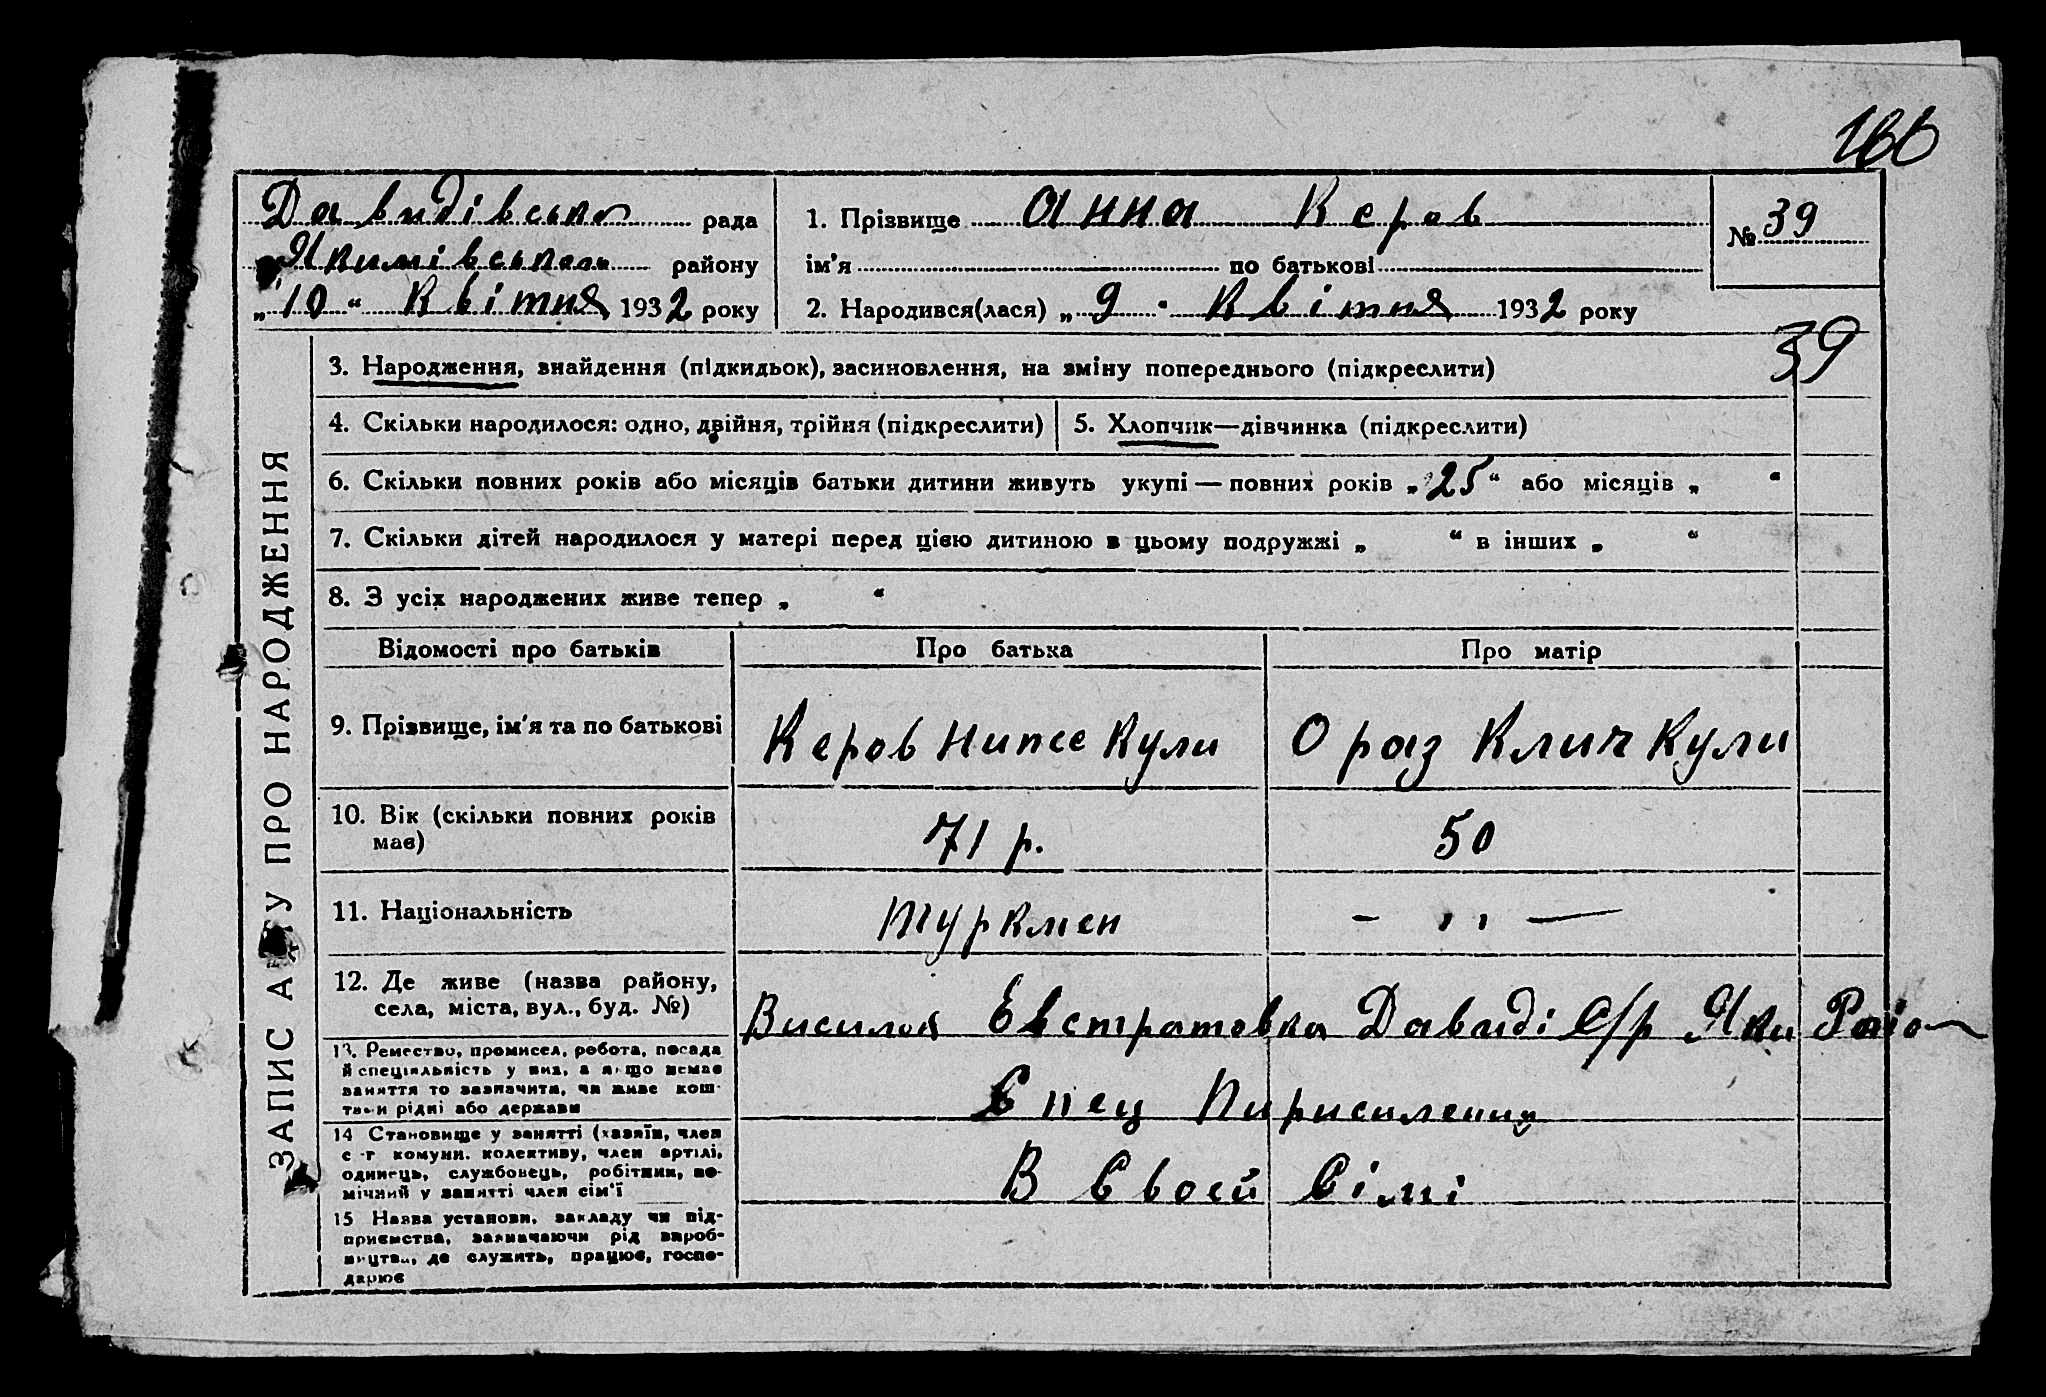 166
Давидівська рада
Якимівського району
„10“ Квітня 1932 року
1. Прізвище Анна Керов
ім'я по батькові
2. Народився(лася) „9“ Квітня 1932 року
№ 39
39
ЗАПИС АКТУ ПРО НАРОДЖЕННЯ
3. Народження, знайдення (підкидьок), засиновлення, на зміну попереднього (підкреслити)
4. Скільки народилося: одно, двійня, трійня (підкреслити)
5. Хлопчик—дівчинка (підкреслити)
6. Скільки повних років або місяців батьки дитини живуть укупі — повних років „25“ або місяців „ “
7. Скільки дітей народилося у матері перед цією дитиною в цьому подружжі „ “ в інших „ “
8. З усіх народжених живе тепер „ “
Відомості про батьків Про батька Про матір
9. Прізвище, ім'я та по батькові Керов Нипсе Кули Ораз Клич Кули
10. Вік (скільки повних років
має) 71 р. 50
11. Національність туркмен - ,, —
12. Де живе (назва району,
села, міста, вул., буд. №) Висилок Евстратовка Давиді С/р Яки Раіо
13. Ремество, промисел, робота, посада
й спеціяльність у них, а якщо немає
заняття то зазначити, чи живе кош-
тами рідні або держави Спец Пирисиленци
14 Становище у занятті (хазяїн, член
с.-г комуни, колективу, член артілі,
одинець, службовець, робітник, по-
мічний у занятті член сім'ї В Своей Сімі
15 Назва установи, закладу чи під-
приємства, зазначаючи рід вироб-
ництва, де служить, працює, госпо-
дарює